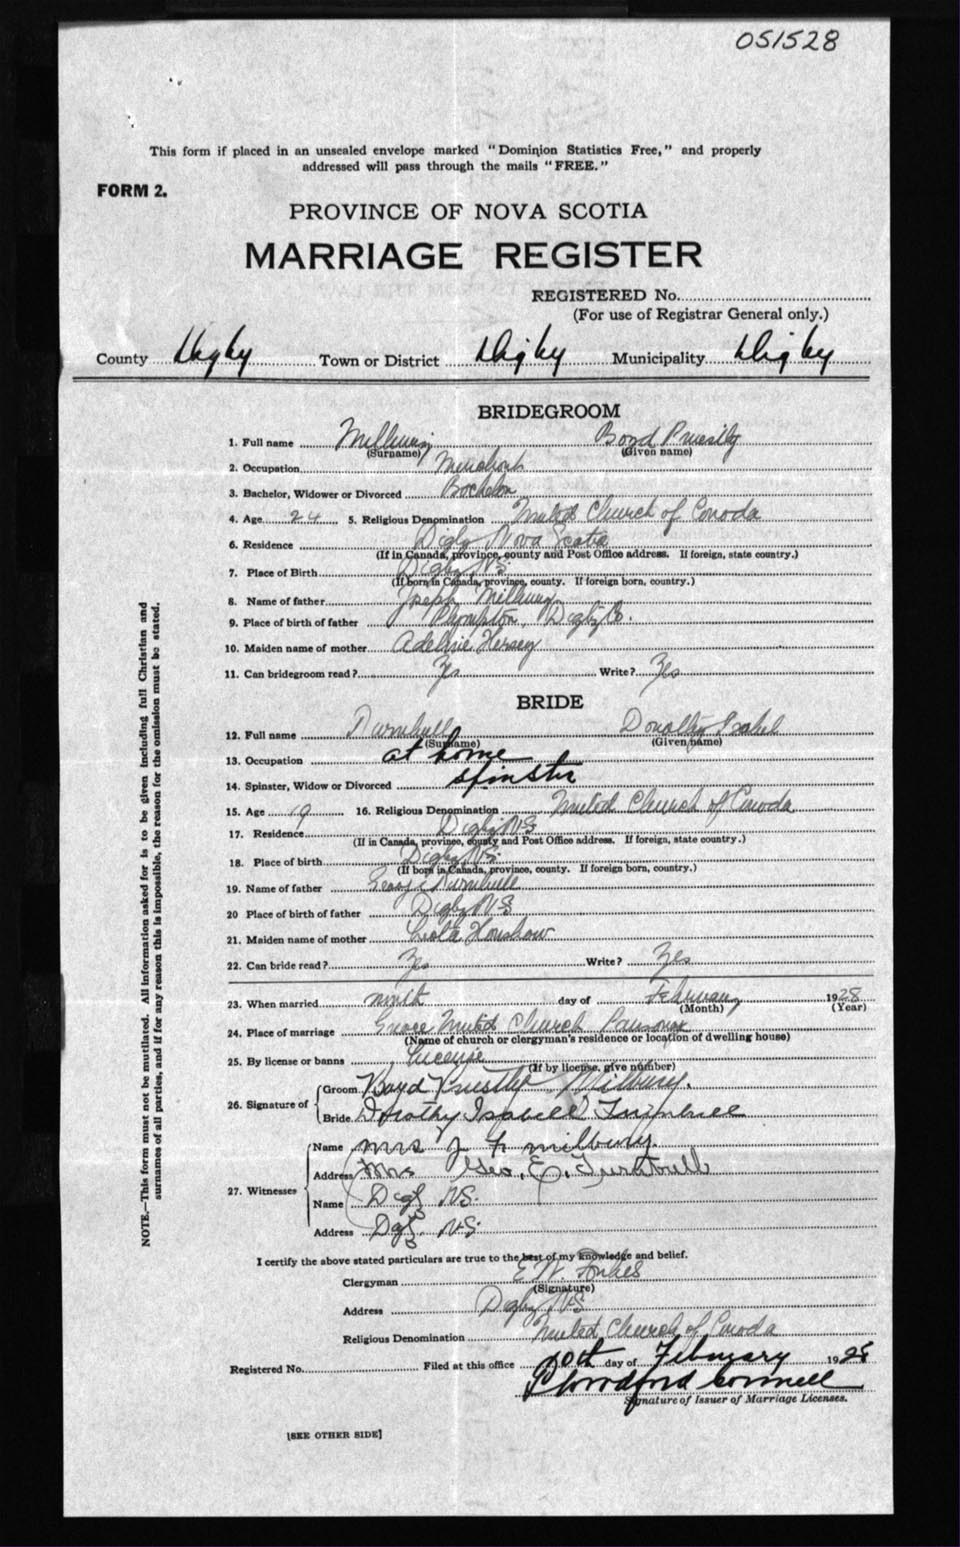 051528
This form if placed in an unsealed envelope marked "Dominion Statistics Free," and properly
addressed will pass through the mails "FREE."
FORM 2.
PROVINCE OF NOVA SCOTIA
MARRIAGE REGISTER
REGISTERED No.
(For use of Registrar General only.)
County Digby Town or District Digby Municipality Digby
BRIDEGROOM
1. Full name Milbury Boyd Priestly
(Surname) (Given name)
2. Occupation Merchant
3. Bachelor, Widower or Divorced Bachelor
4. Age 24 5. Religious Denomination United Church of Canada
6. Residence Digby Nova Scotia
(If in Canada, province, county and Post Office address. If foreign, state country.)
7. Place of Birth Digby N.S.
(If born in Canada, province, county. If foreign born, country.)
8. Name of father Joseph Milbury
9. Place of birth of father Plympton, Digby Co.
10. Maiden name of mother Hersey
11. Can bridegroom read? Yes Write? Yes
BRIDE
12. Full name Turnbull Dorothy Isabel
(Surname) (Given name)
13. Occupation at home
14. Spinster, Widow or Divorced spinster
15. Age 19 16. Religious Denomination United Church of Canada
17. Residence Digby N.S.
(If in Canada, province, county and Post Office address. If foreign, state country.)
18. Place of birth Digby N.S.
(If born in Canada, province, county. If foreign born, country.)
19. Name of father George Turnbull
20 Place of birth of father Digby N.S.
21. Maiden name of mother
22. Can bride read? Yes Write? Yes
23. When married ninth day of February 1928
(Month) (Year)
24. Place of marriage Grace United Church Parsonage
(Name of church or clergyman's residence or location of dwelling house)
25. By license or banns License
(If by license, give number)
26. Signature of Groom Boyd Priestly Milbury.
Bride Dorothy Isabell Turnbull
27. Witnesses
Name Mrs J F Milbury.
Address Mrs Geo. E. Turnbull
Name Digby N.S.
Address Digby N.S.
I certify the above stated particulars are true to the best of my knowledge and belief.
Clergyman E W. Forbes
(Signature)
Address Digby N.S.
Religious Denomination United Church of Canada
Registered No. Filed at this office 10th day of February 1928
Signature of Issuer of Marriage Licenses.
[SEE OTHER SIDE]
NOTE.—This form must not be mutilated. All information asked for is to be given including full Christian and
surnames of all parties, and if for any reason this is impossible, the reason for the omission must be stated.